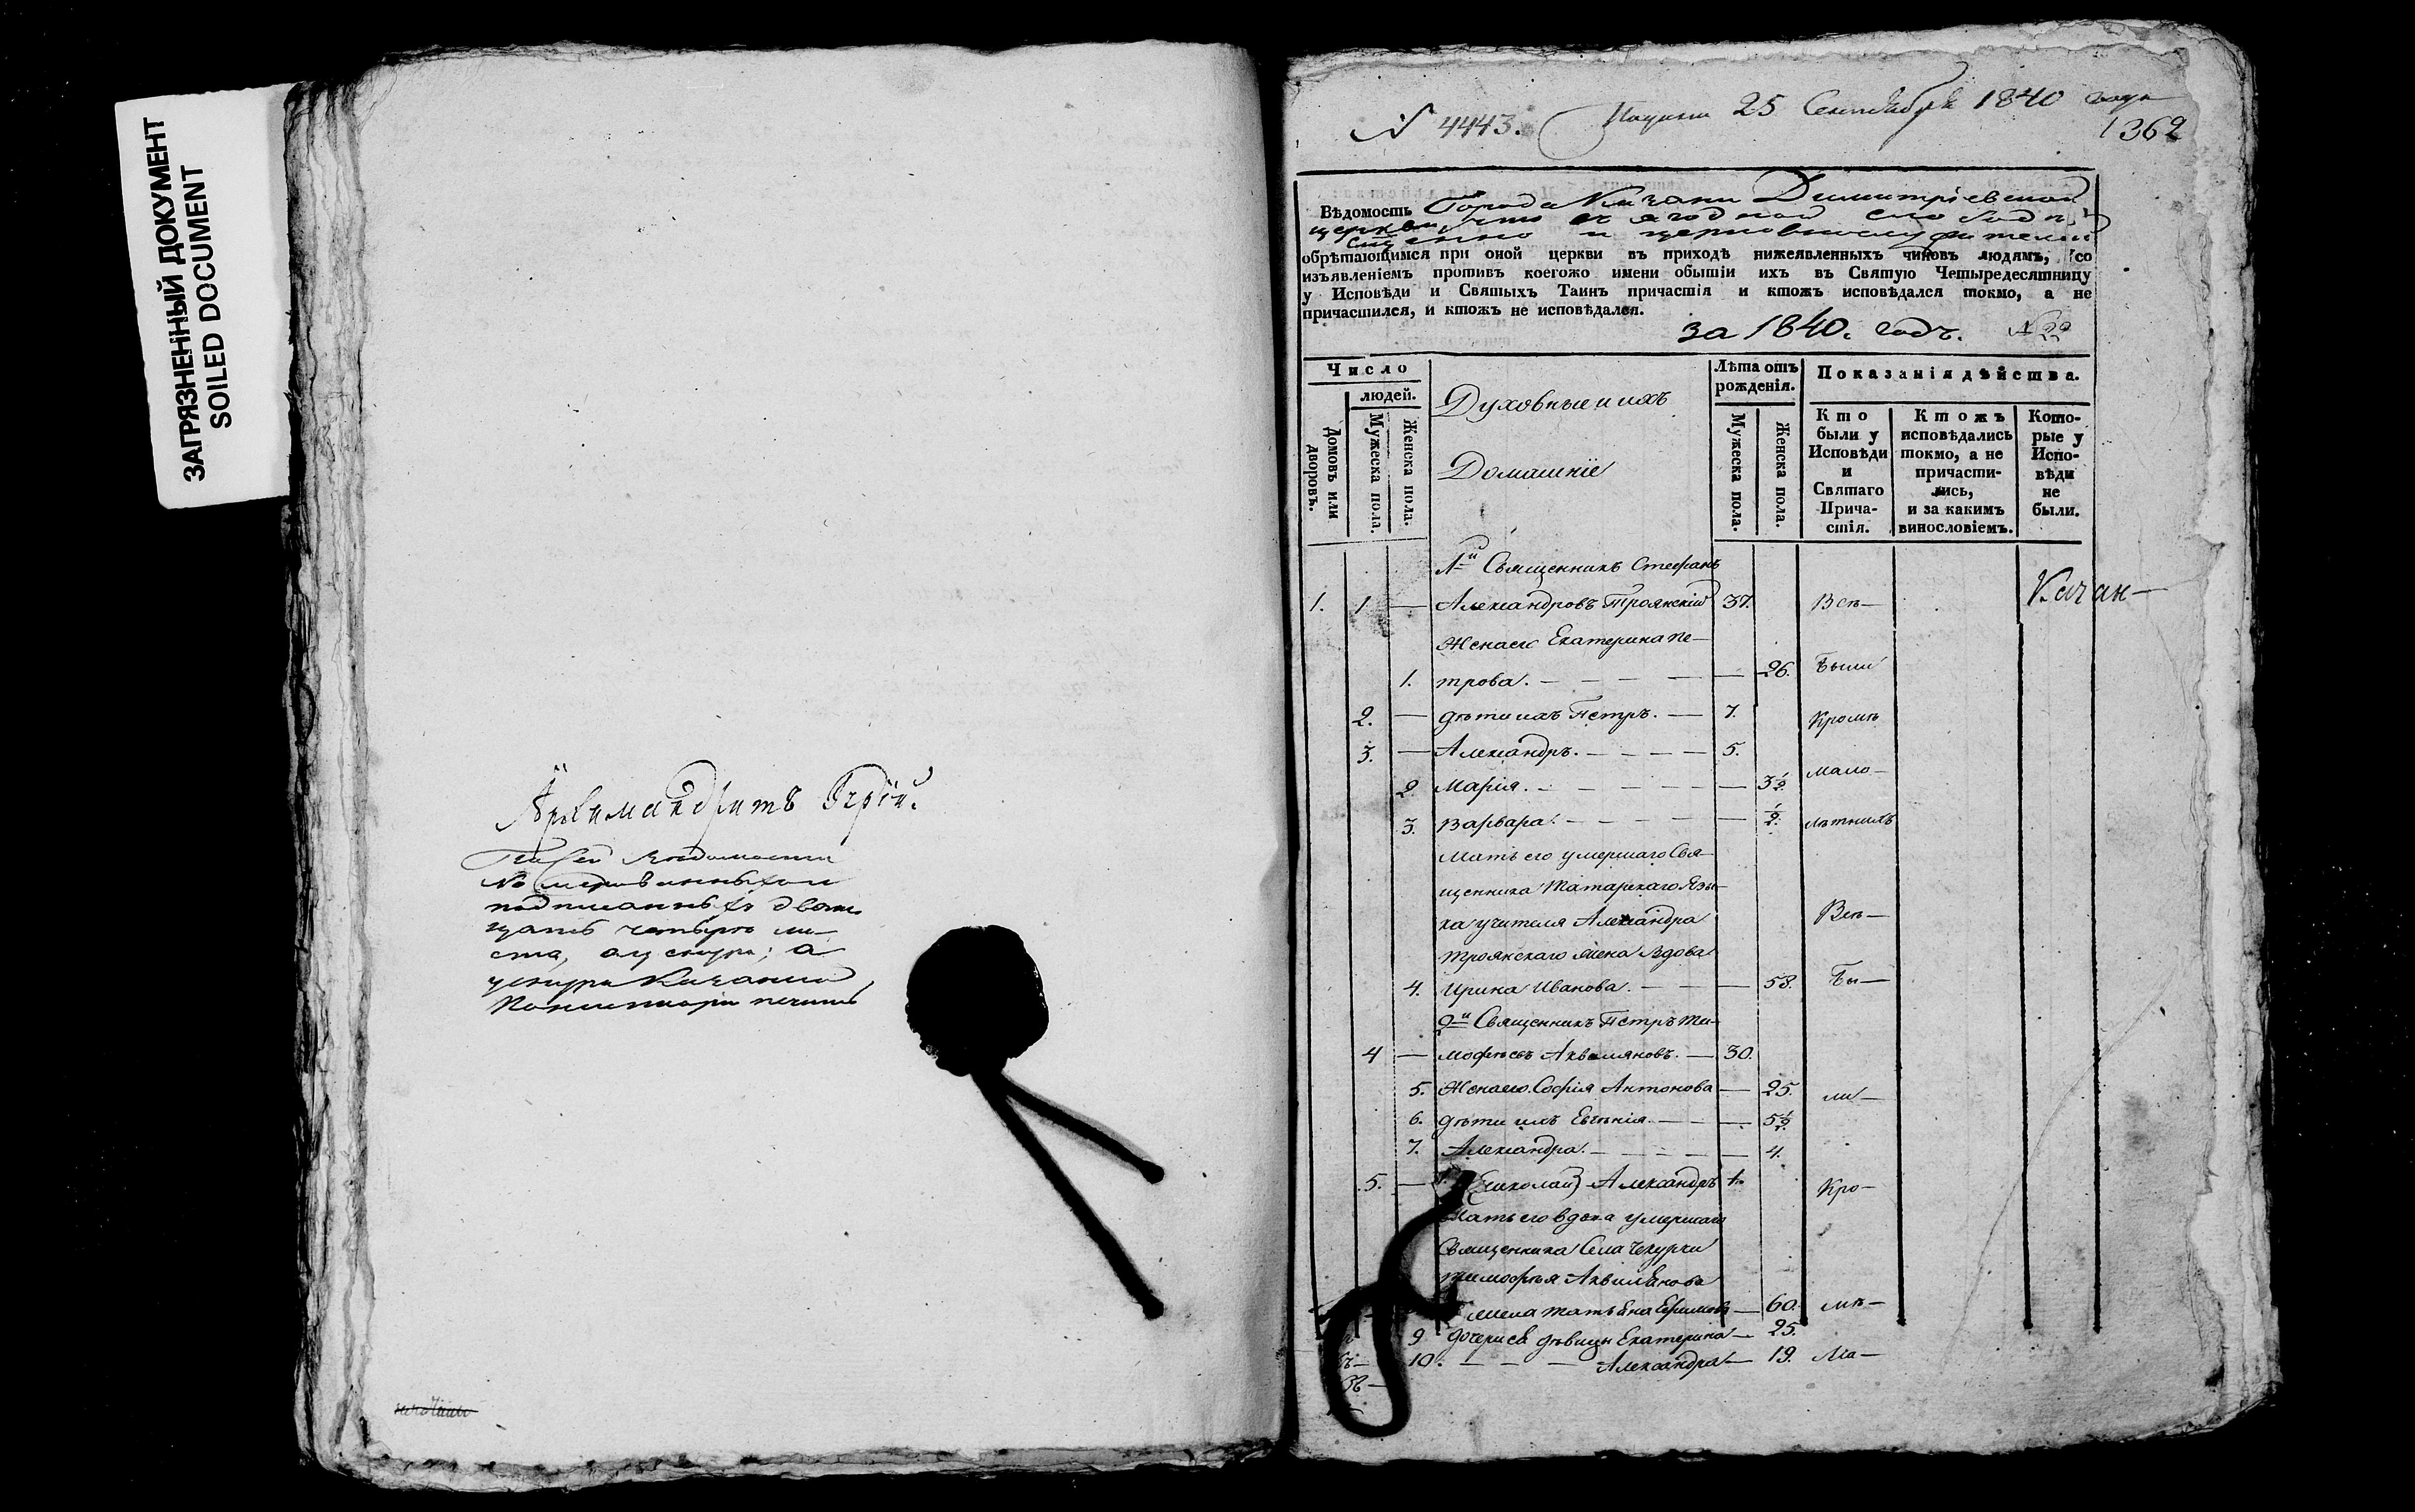 ЗАГРЯЗНЕННЫЙ ДОКУМЕНТ
SOILED DOCUMENT
Архимандритъ
въдомости
подписанныхъ двад
цать четыре ли-
ста, а
Казанской
Консисторіи печать
N 4443. 25 Сентября 1840 года
1362
Вѣдомость Города Казани Димитріевской
церкви, что въ Ягодной слободѣ,
священно и церковнослужителей
обрѣтающимся при оной церкви въ приходѣ нижеявленныхъ чиновъ людямъ, со
изъявленіемъ противъ коегожо имени обытіи ихъ въ Святую Четыредесятницу
у Исповѣди и Святыхъ Таинъ причастія и ктожъ исповѣдался токмо, а не
причастился, и ктожъ не исповѣдался.
за 1840. годъ. N 22
Число
людей.
Домовъ или дворовъ.
Мужеска пола.
Женска пола.
Духовные и ихъ
Домашніе
Лѣта отъ рожденія.
Мужеска пола.
Женска пола.
Показанія дѣйства.
Кто были у Исповѣди и Святаго Прича-стія.
Ктожъ исповѣдались токмо, а не причасти-лись, и за какимъ винословіемъ.
Кото-рые у Испо-вѣди не были.
1й Священникъ Стефанъ
1. 1 — Александровъ Троянскій 37. Всѣ — Казан—
Жена его Екатерина Пе-
1. трова. — 26. были
2. — дѣти ихъ Петръ. — 7. Кромѣ
3. — Александръ. — 5.
2 Марія. — 3½. мало-
3. Варвара. — ½. лѣтнихъ
Мать его умершаго Свя-
щенника Татарскаго Язы-
ка учителя Александра Всѣ—
Троянскаго жена вдова
4. Ирина Иванова. — 58. бы—
2й Священникъ Петръ Ти-
4 — мофеевъ Аквиляновъ. — 30.
5. Жена его София Антонова — 25. ли—
6. дѣти ихъ Евгенія. — 5½
7. Александра. — 4.
5. — (Николай) Александръ 1. Кро—
Мать его вдова умершаго
Священника Села Чекурчи
Тимофея Аквилянова
жена Татьяна Ефимова — 60. мѣ—
9 дочери ея дѣвицы Екатерина — 25.
10. — Александра — 19. Ма—